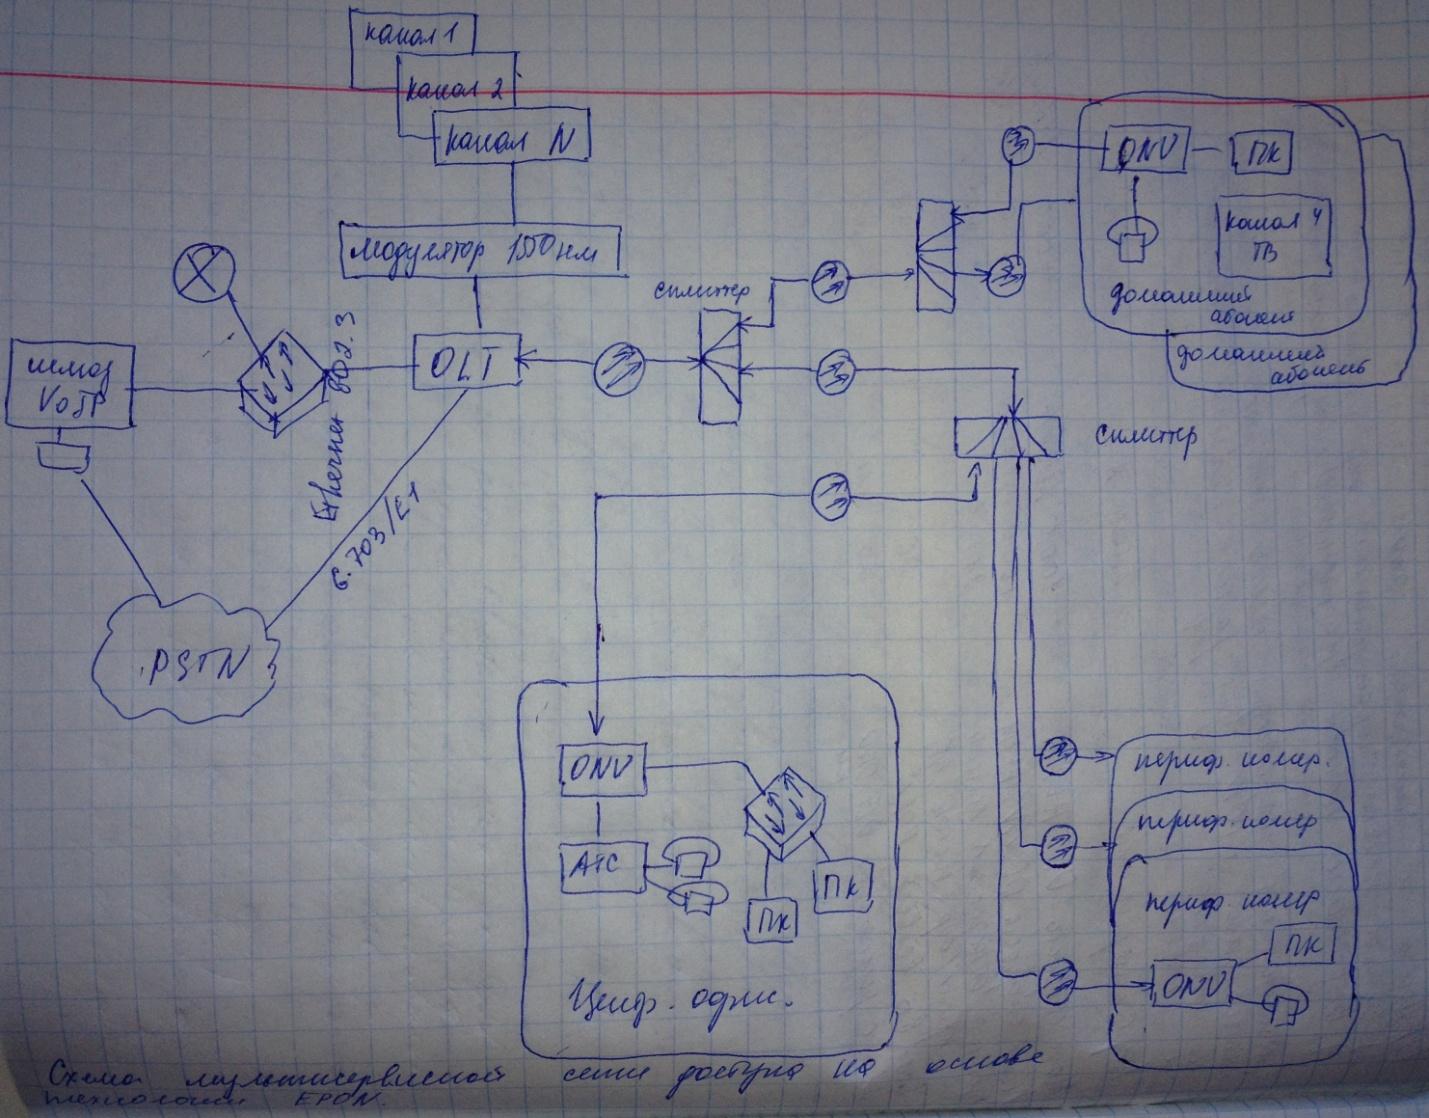 канал 1
канал 2
канал N
модулятор 1550 нм
OLT
шлюз
VoIP
Ethernet 802.3
G.703/E1
PSTN
сплиттер
сплиттер
ONU
ПК
канал 4
ТВ
домашний
абонент
домашний
абонент
ONU
АТС
ПК
ПК
Центр. офис.
периф. номер.
периф. номер
периф. номер
ONU
ПК
Схема мультисервисной сети доступа на основе
технологии EPON.